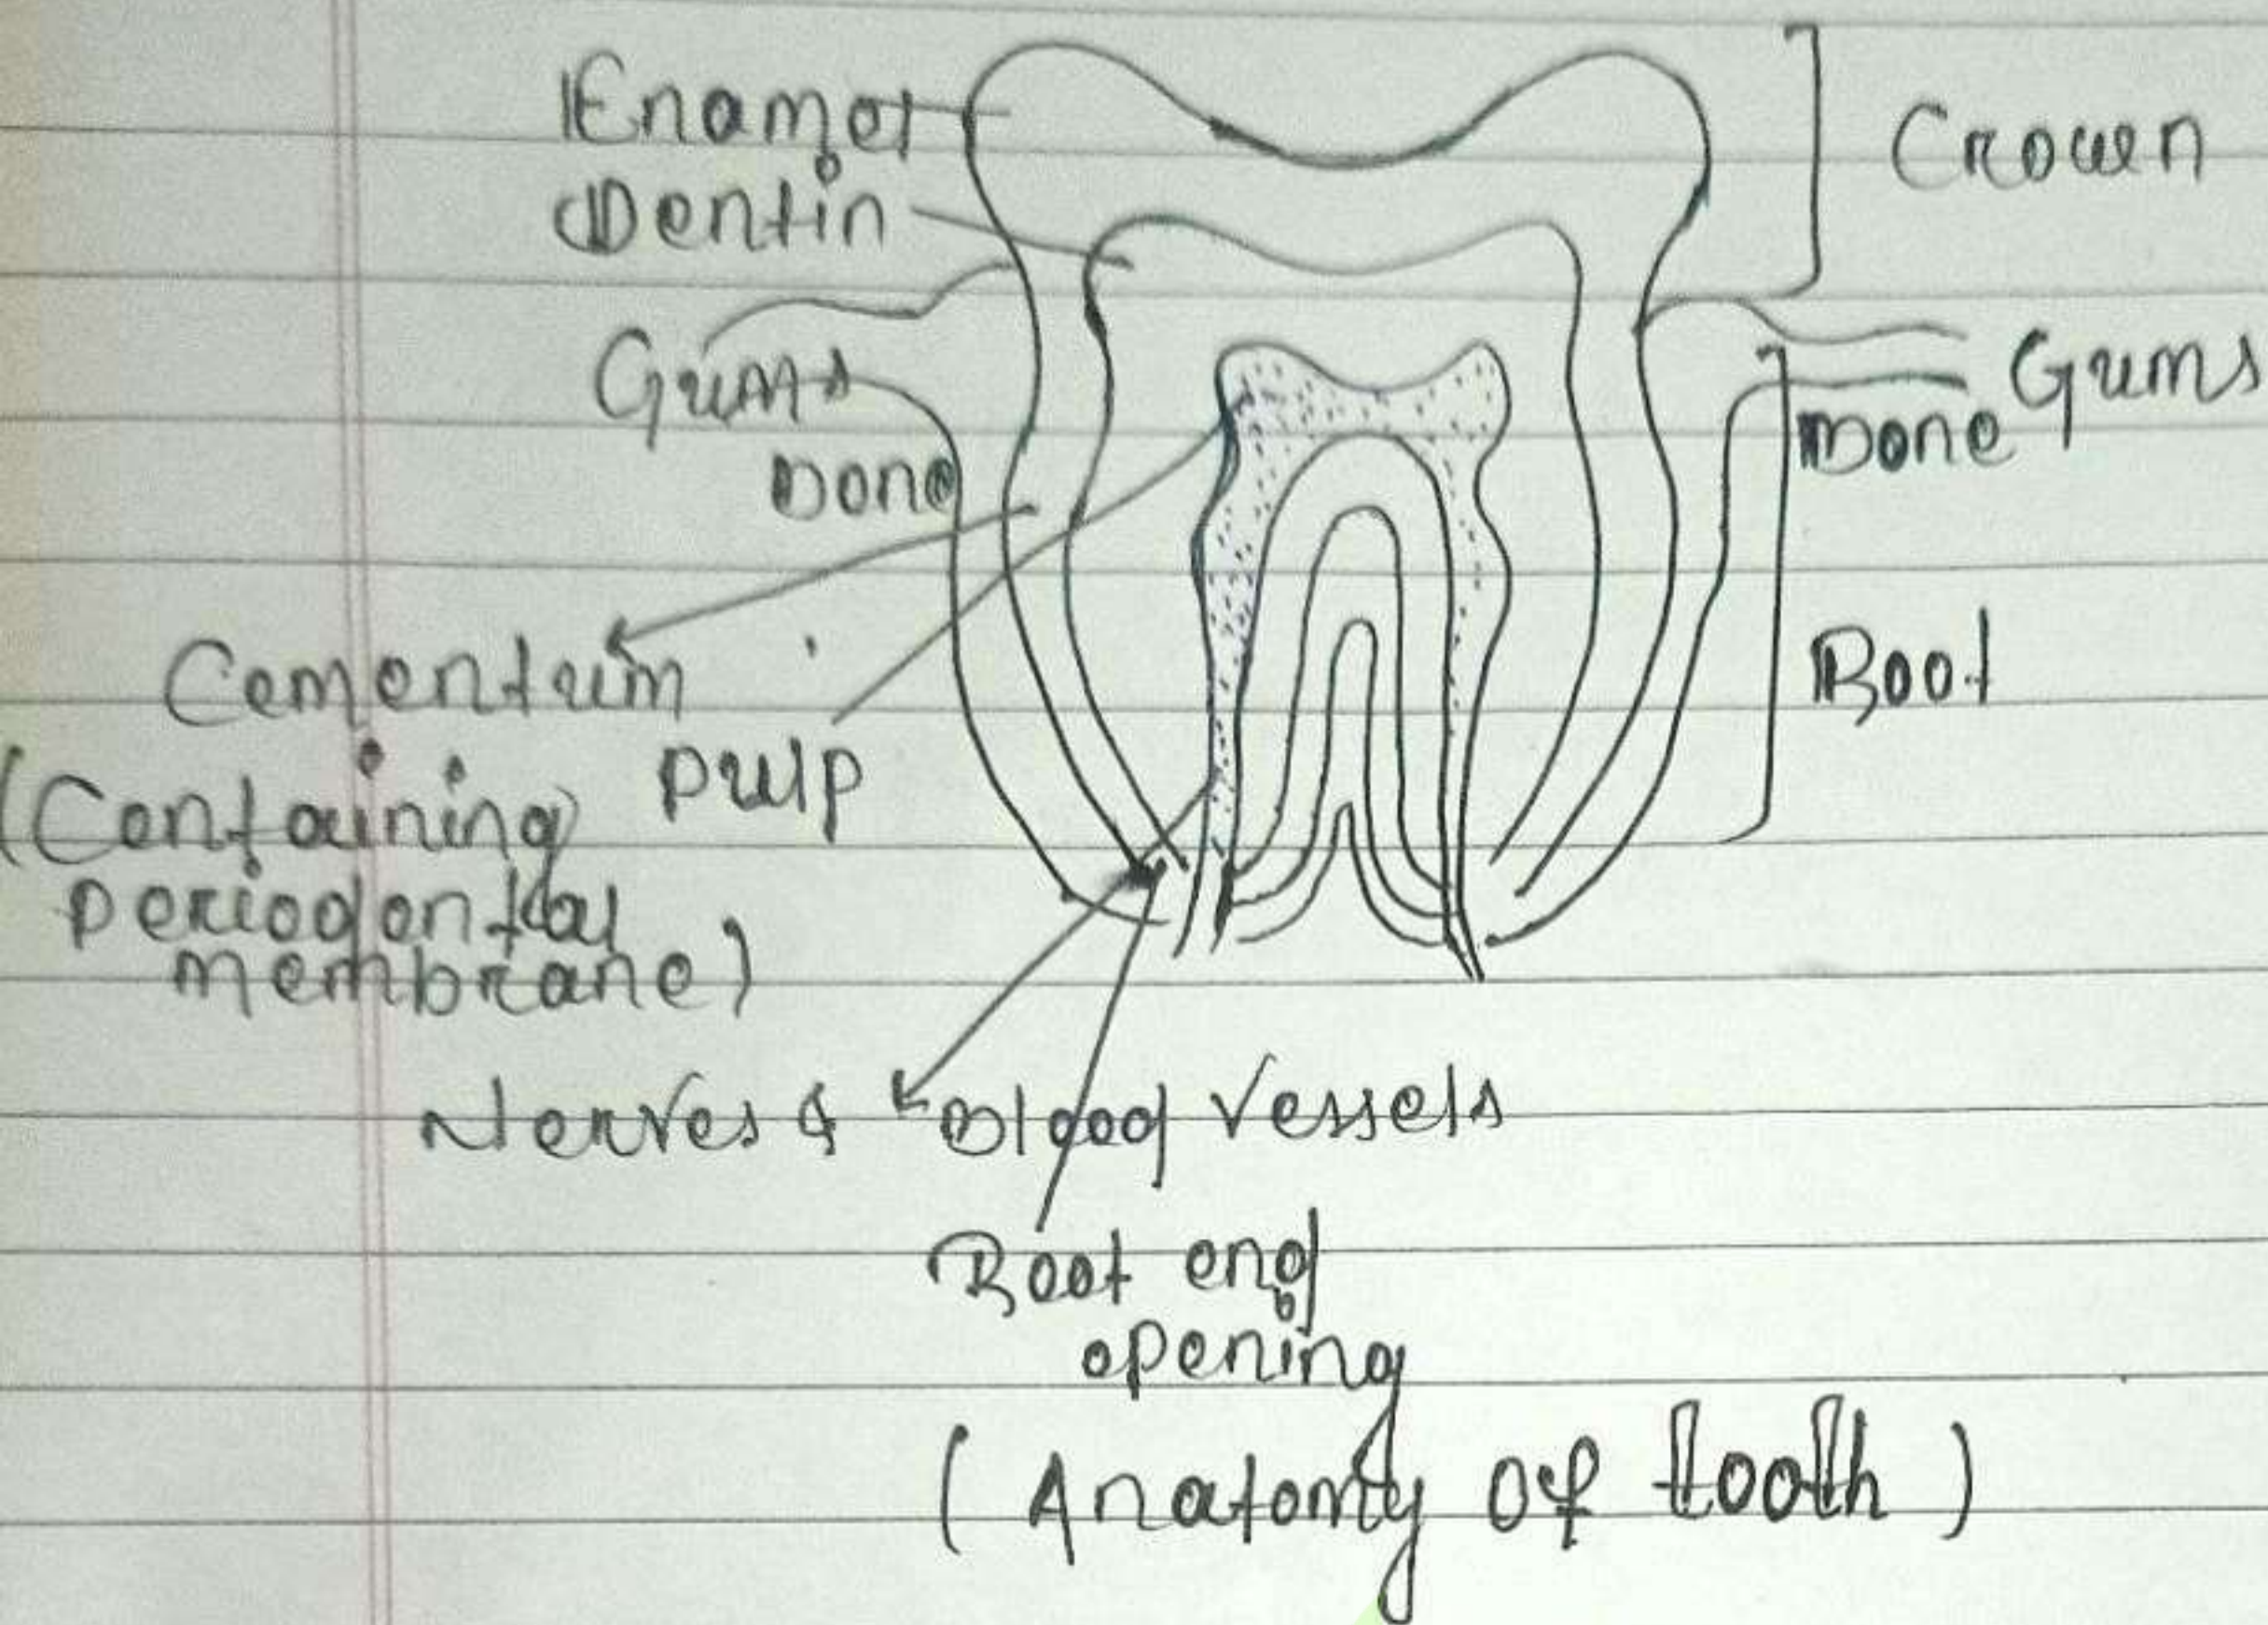 Enamel
Crown
Dentin
Gums
Gums
Bone
Bone
Root
Cementum
Pulp
(Containing
periodontal
membrane)
Nerves & Blood Vessels
Root end
opening
(Anatomy of tooth)